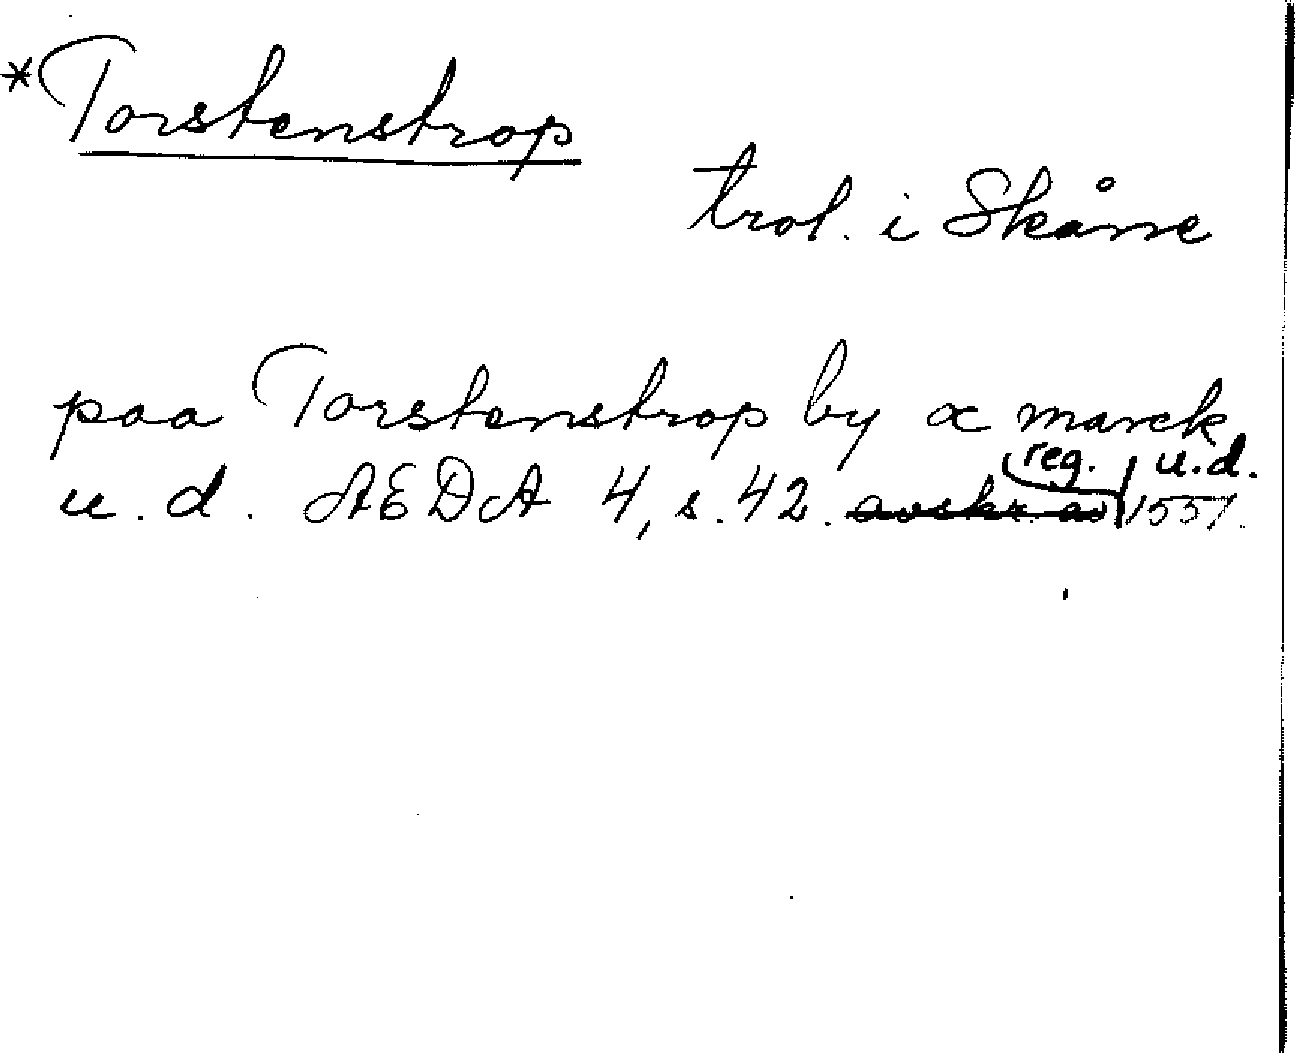 *Torstenstrop
trol. i Skåne
paa Torstenstrop by x marck
reg. u.d.
u. d. AEDA 4, s. 42. avskr. av 1551.